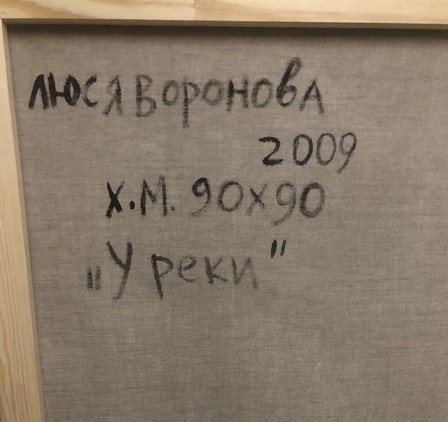 Люся Воронова
2009
х.м. 90х90
„У реки"